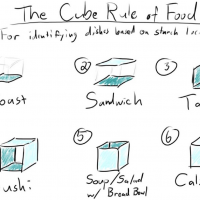 The Cube Rule of Food
For identifying dishes based on starch loc
② ③
oast Sandwich Ta
⑤ ⑥
ushi Soup/Salad Cal
w/ Bread Bowl